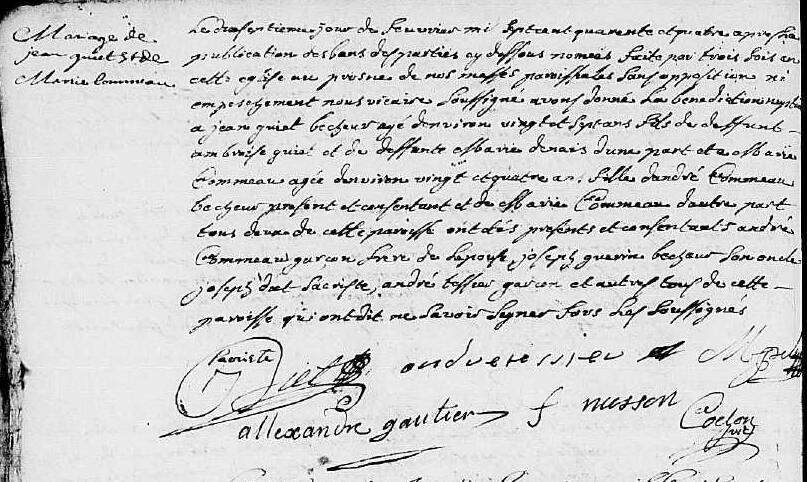 Mariage de
jean quiet et de
Marie Commeau
Le dixseptieme jour de feuvrier mil sept cent quarente et quatre apres la
publication des bans des parties cy dessous nomées faite par trois fois en
cette eglise au prosne de nos messes paroissiales sans opposition ni
empeschement nous vicaire soussigné avons donné la benediction nuptia
a jean quiet becheur agé denviron vingt et sept ans fils de deffunt
ambroise quiet et de deffente Marie denais dune part et a Marie
Commeau agée denviron vingt et quatre ans fille dandré Commeau
becheur present et consentant et de Marie Commeau dautre part
tous deux de cette paroisse ont étés presents et consentants andré
Commeau garçon frere de lepouse, joseph guerin becheur son oncle
joseph diet sacriste, andré tessier garçon et autres tous de cette
paroisse qui ont dit ne savoir signer fors les soussignés
sacriste
J Diet andre tessier
allexandre gautier f nusson Cochon
vic